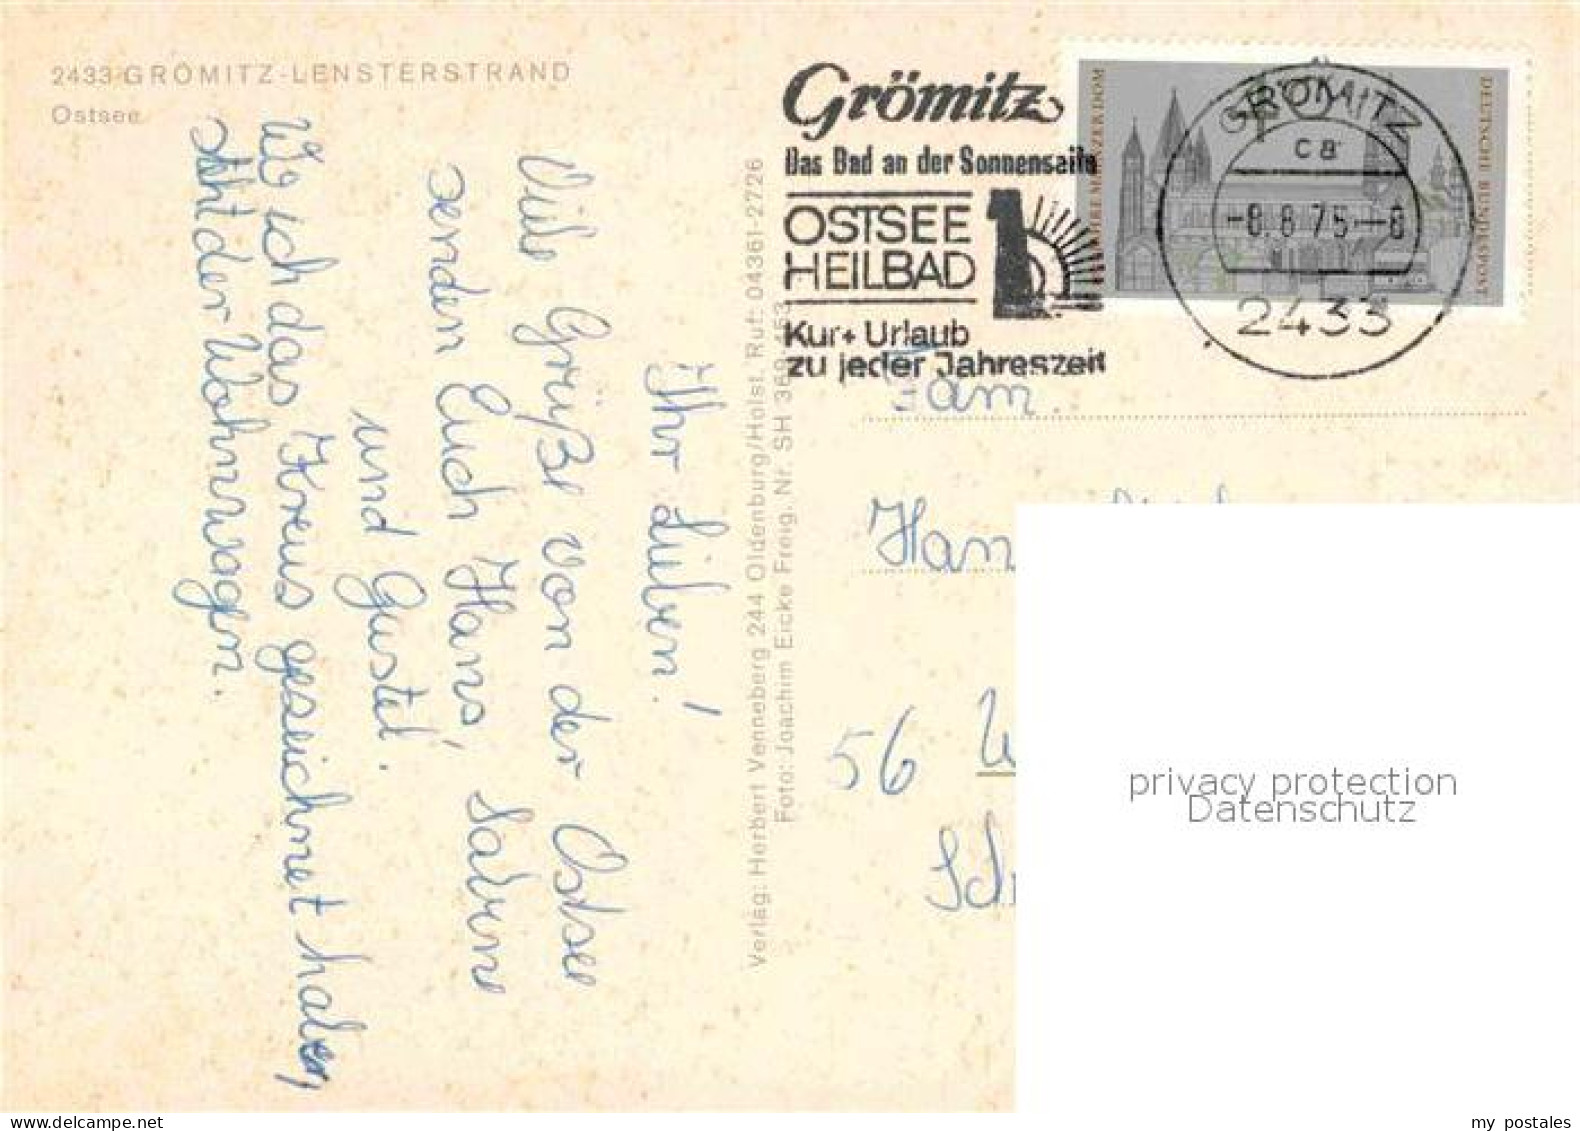 2433 GRÖMITZ-LENSTERSTRAND
Ostsee
Ihr Lieben!
Viele Grüße von der Ostsee
senden Euch Hans, Sabine
und Gustel.
Wo ich das Kreus geseichnet habe,
steht der Wohnwagen.
Verlag: Herbert Venneberg 244 Oldenburg/Holst. Ruf: 04361-2726
Foto: Joachim Eicke Freig. Nr. SH 360-453
Grömitz
Das Bad an der Sonnenseite
OSTSEE
HEILBAD
Kur+ Urlaub
zu jeder Jahreszeit
JAHRE MAINZER DOM
DEUTSCHE BUNDESPOST
GRÖMITZ
ca
-8.8.75--8
2433
Fam.
Han
56
Sch
privacy protection
Datenschutz
my postales